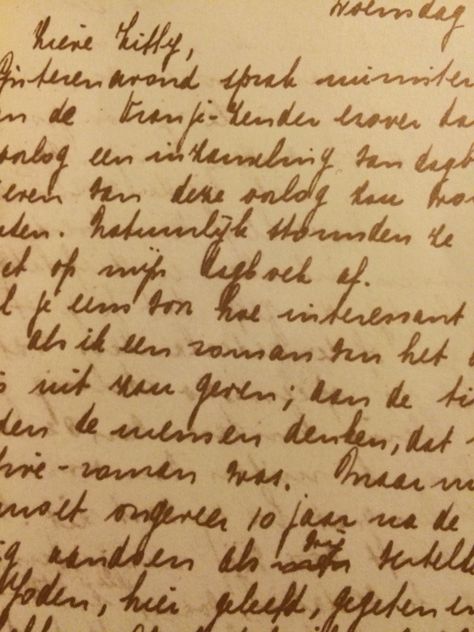 Woensdag
Lieve Kitty,
Gisterenavond sprak minister
an de Oranje-zender erover dat
oorlog een inzameling van dagb
ieven van deze oorlog zou wor
den. Natuurlijk stormden ze
et op mijn dagboek af.
l je eens voor hoe interessant
als ik een roman van het
s uit zou geven; aan de ti
den de mensen denken, dat
tive-roman was. Maar nu
moet ongeveer 10 jaar na de
ig aandoen als wij vertelle
Joden, hier geleefd, gegeten en